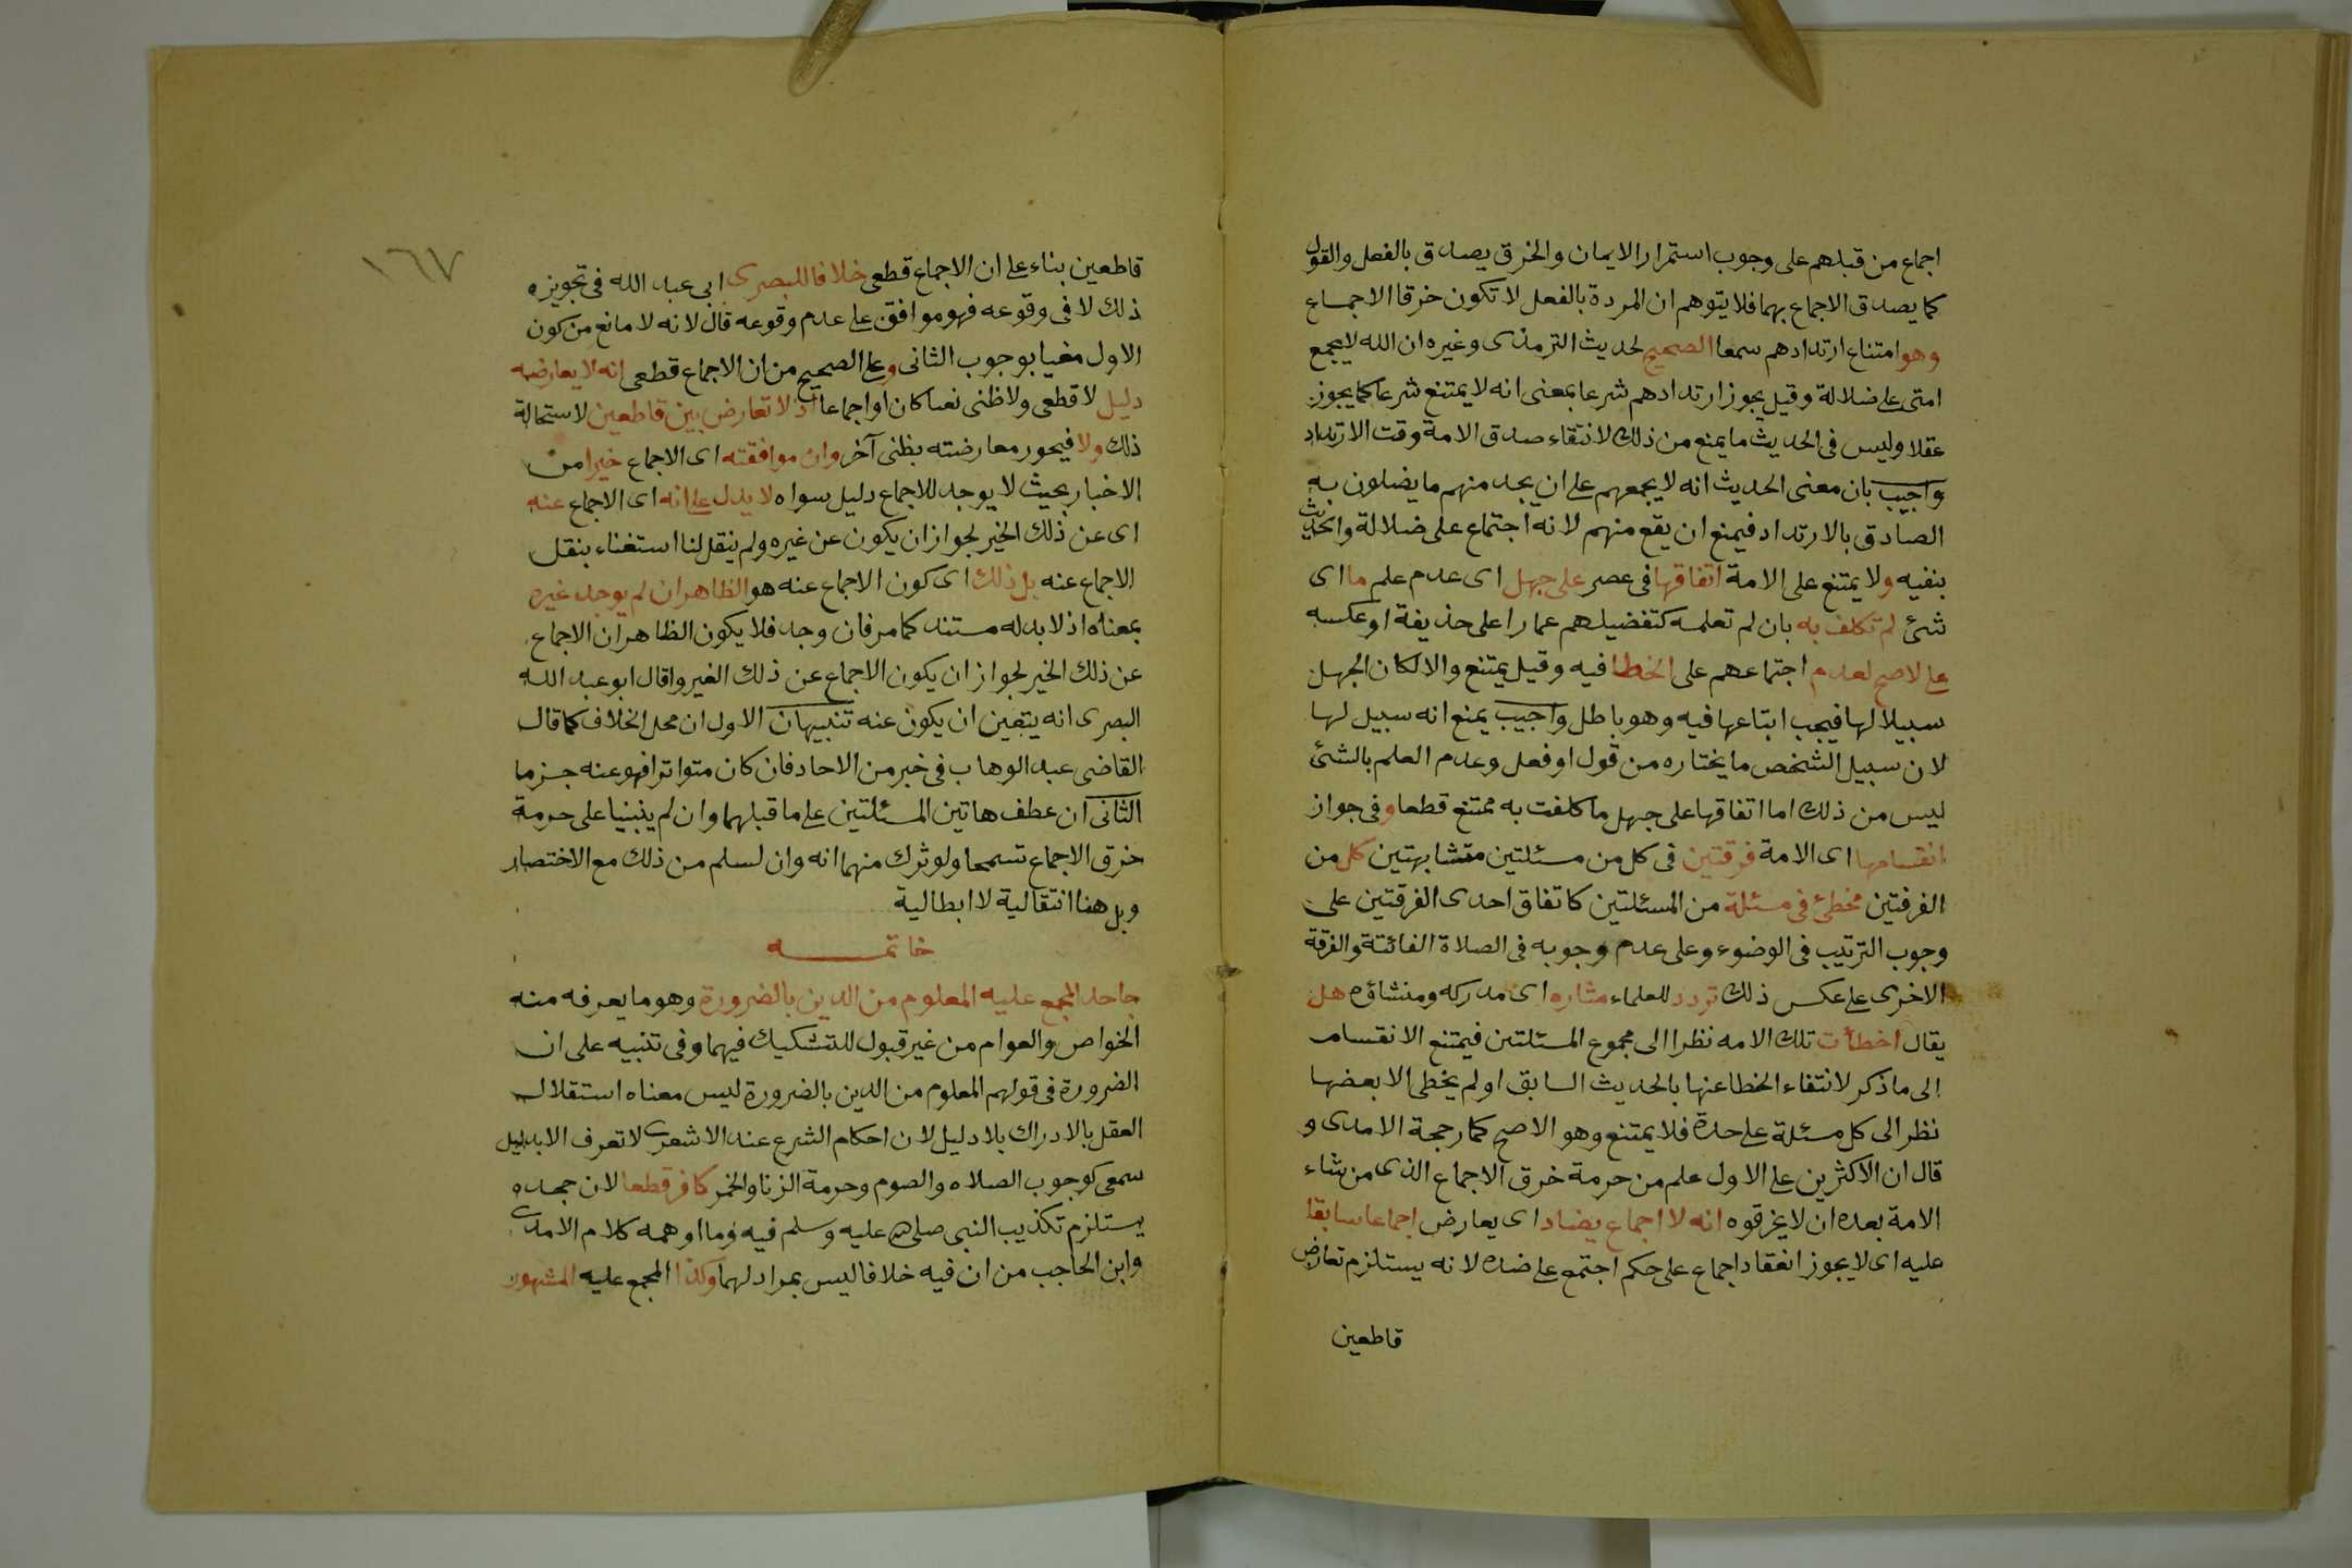 اجماع من قبلهم على وجوب استمرار الايمان والخرق يصدق بالفعل والقول
كما يصدق الاجماع بهما فلا يتوهم ان المردة بالفعل لا تكون خرقا الاجماع
وهو امتناع ارتدادهم سمعا الصحيح لحديث الترمذى وغيره ان الله لا يجمع
امتى على ضلالة وقيل يجوز ارتدادهم شرعا بمعنى انه لا يمتنع شرعا كما يجوز
عقلا وليس فى الحديث ما يمنع من ذلك لانتقاء صدق الامة وقت الارتداد
واجيب بان معنى الحديث انه لا يجمعهم على ان يجد منهم ما يضلون به
الصادق بالارتداد فيمنع ان يقع منهم لانه اجتماع على ضلالة والحديث
ينفيه ولا يمتنع على الامة اتفاقها فى عصر على جهل اى عدم علم ما اى
شئ لم تكلف به بان لم تعلمه كتفضيلهم عمارا على حذيفة او عكسه
على الاصح لعدم اجتماعهم على الخطا فيه وقيل يمتنع والا لكان الجهل
سبيلا لها فيجب ابتاعها فيه وهو باطل واجيب يمنع انه سبيل لها
لان سبيل الشخص ما يختاره من قول او فعل وعدم العلم بالشئ
ليس من ذلك اما اتفاقها على جهل ما كلفت به ممتنع قطعا وفى جواز
انقسامها اى الامة فرقتين فى كل من مسئلتين متشابهتين كل من
الفرقتين مخطئ فى مسئلة من المسئلتين كاتفاق احدى الفرقتين على
وجوب الترتيب فى الوضوء وعلى عدم وجوبه فى الصلاة الفائتة والفرقة
الاخرى على عكس ذلك تردد للعلماء مثاره اى مدركه ومنشاؤه هل
يقال اخطأت تلك الامه نظرا الى مجموع المسئلتين فيمتنع الانقسام
الى ما ذكر لانتفاء الخطا عنها بالحديث السابق او لم يخطى الا بعضها
نظر الى كل مسئلة على حدة فلا يمتنع وهو الاصح كما رجحة الامدى و
قال ان الاكثرين على الاول علم من حرمة خرق الاجماع الذى من شاء
الامة بعده ان لا يخرقوه انه لا اجماع يضاد اى يعارض اجماعا سابقا
عليه اى لا يجوز انعقاد اجماع على حكم اجتمع على ضده لانه يستلزم تعارض
قاطعين
١٦٧
قاطعين بناء على ان الاجماع قطعى خلافا للبصرى ابى عبد الله فى تجويزه
ذلك لا فى وقوعه فهو موافق على عدم وقوعه قال لانه لا مانع من كون
الاول مغيا بوجوب الثانى وعلى الصحيح من ان الاجماع قطعى انه لا يعارضه
دليل لا قطعى ولا ظنى نصا كان او اجماعا اذ لا تعارض بين قاطعين لاستحالة
ذلك ولا فيحور معارضته بظنى آخر وان موافقته اى الاجماع خبرا من
الاخبار بحيث لا يوجد للاجماع دليل سواه لا يدل على انه اى الاجماع عنه
اى عن ذلك الخبر لجواز ان يكون عن غيره ولم ينقل لنا استغناء بنقل
الاجماع عنه بل ذلك اى كون الاجماع عنه هو الظاهر ان لم يوجد غيره
بمعناه اذ لا بد له مستند كما مر فان وجد فلا يكون الظاهر ان الاجماع
عن ذلك الخبر لجواز ان يكون الاجماع عن ذلك الغير واقال ابو عبد الله
البصرى انه يتعين ان يكون عنه تنبيهان الاول ان محل الخلاف كما قال
القاضى عبد الوهاب فى خبر من الاحاد فان كان متواترا فهو عنه جزما
الثانى ان عطف هاتين المسئلتين على ما قبلهما وان لم ينبنيا على حرمة
خرق الاجماع تسمحا ولو ترك منهما انه وان لسلم من ذلك مع الاختصار
وبل هنا انتقالية لا ابطالية
خاتمـــه
جاحد المجمع عليه المعلوم من الدين بالضرورة وهو ما يعرفه منه
الخواص والعوام من غير قبول للتشكيك فيهما وفى تنبيه على ان
الضرورة فى قولهم المعلوم من الدين بالضرورة ليس معناه استقلال
العقل بالادراك بلا دليل لان احكام الشرع عند الاشعرى لا تعرف الا بدليل
سمعى كوجوب الصلاه والصوم وحرمة الزنا والخمر كافر قطعا لان جحده
يستلزم تكذيب النبى صلى الله عليه وسلم فيه وما اوهمه كلام الامدى
وابن الحاجب من ان فيه خلافا ليس بمراد لهما وكذا المجمع عليه المشهور